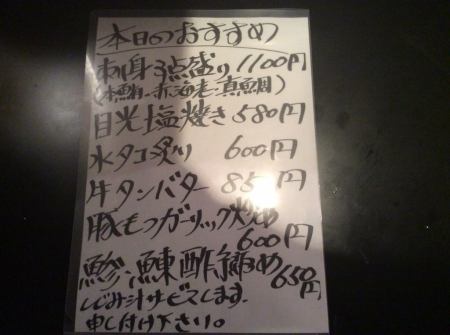 本日のおすすめ
刺身3点盛り 1100円
赤海老・真鯛)
目光塩焼き 580円
水タコ炙り 600円
牛タンバター 85
豚もつガーリック炒め
600円
鰺・鰊酢〆 650円
しじみ汁サービスします。
申し付け下さい。